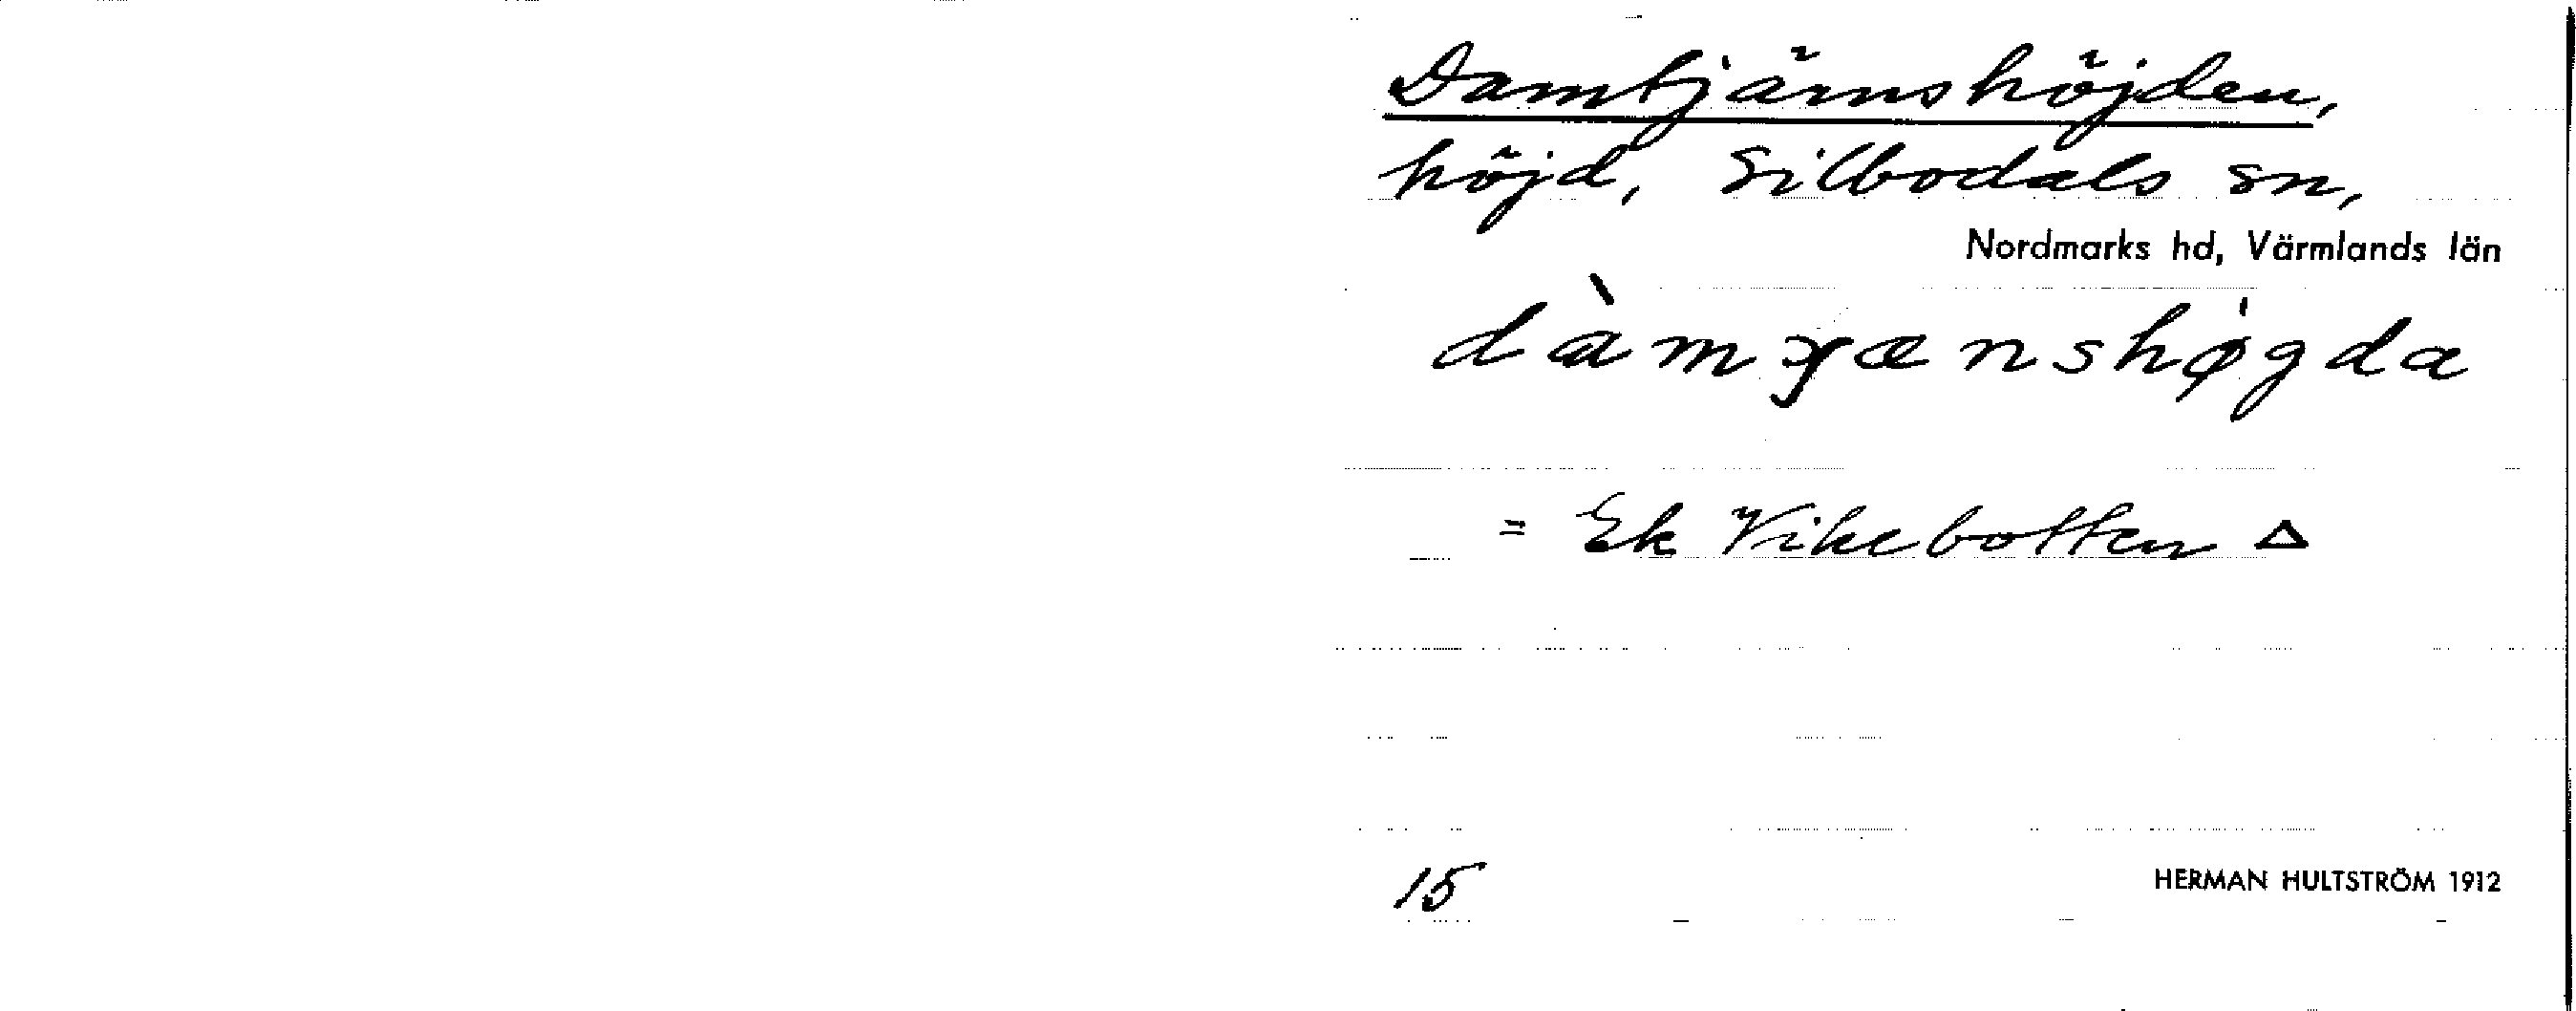 Damtjärnshöjden,
höjd, Silbodals sn,
Nordmarks hd, Värmlands län
dàmɟænshǿgda
= Ek Vikebotten △
15
HERMAN HULTSTRÖM 1912